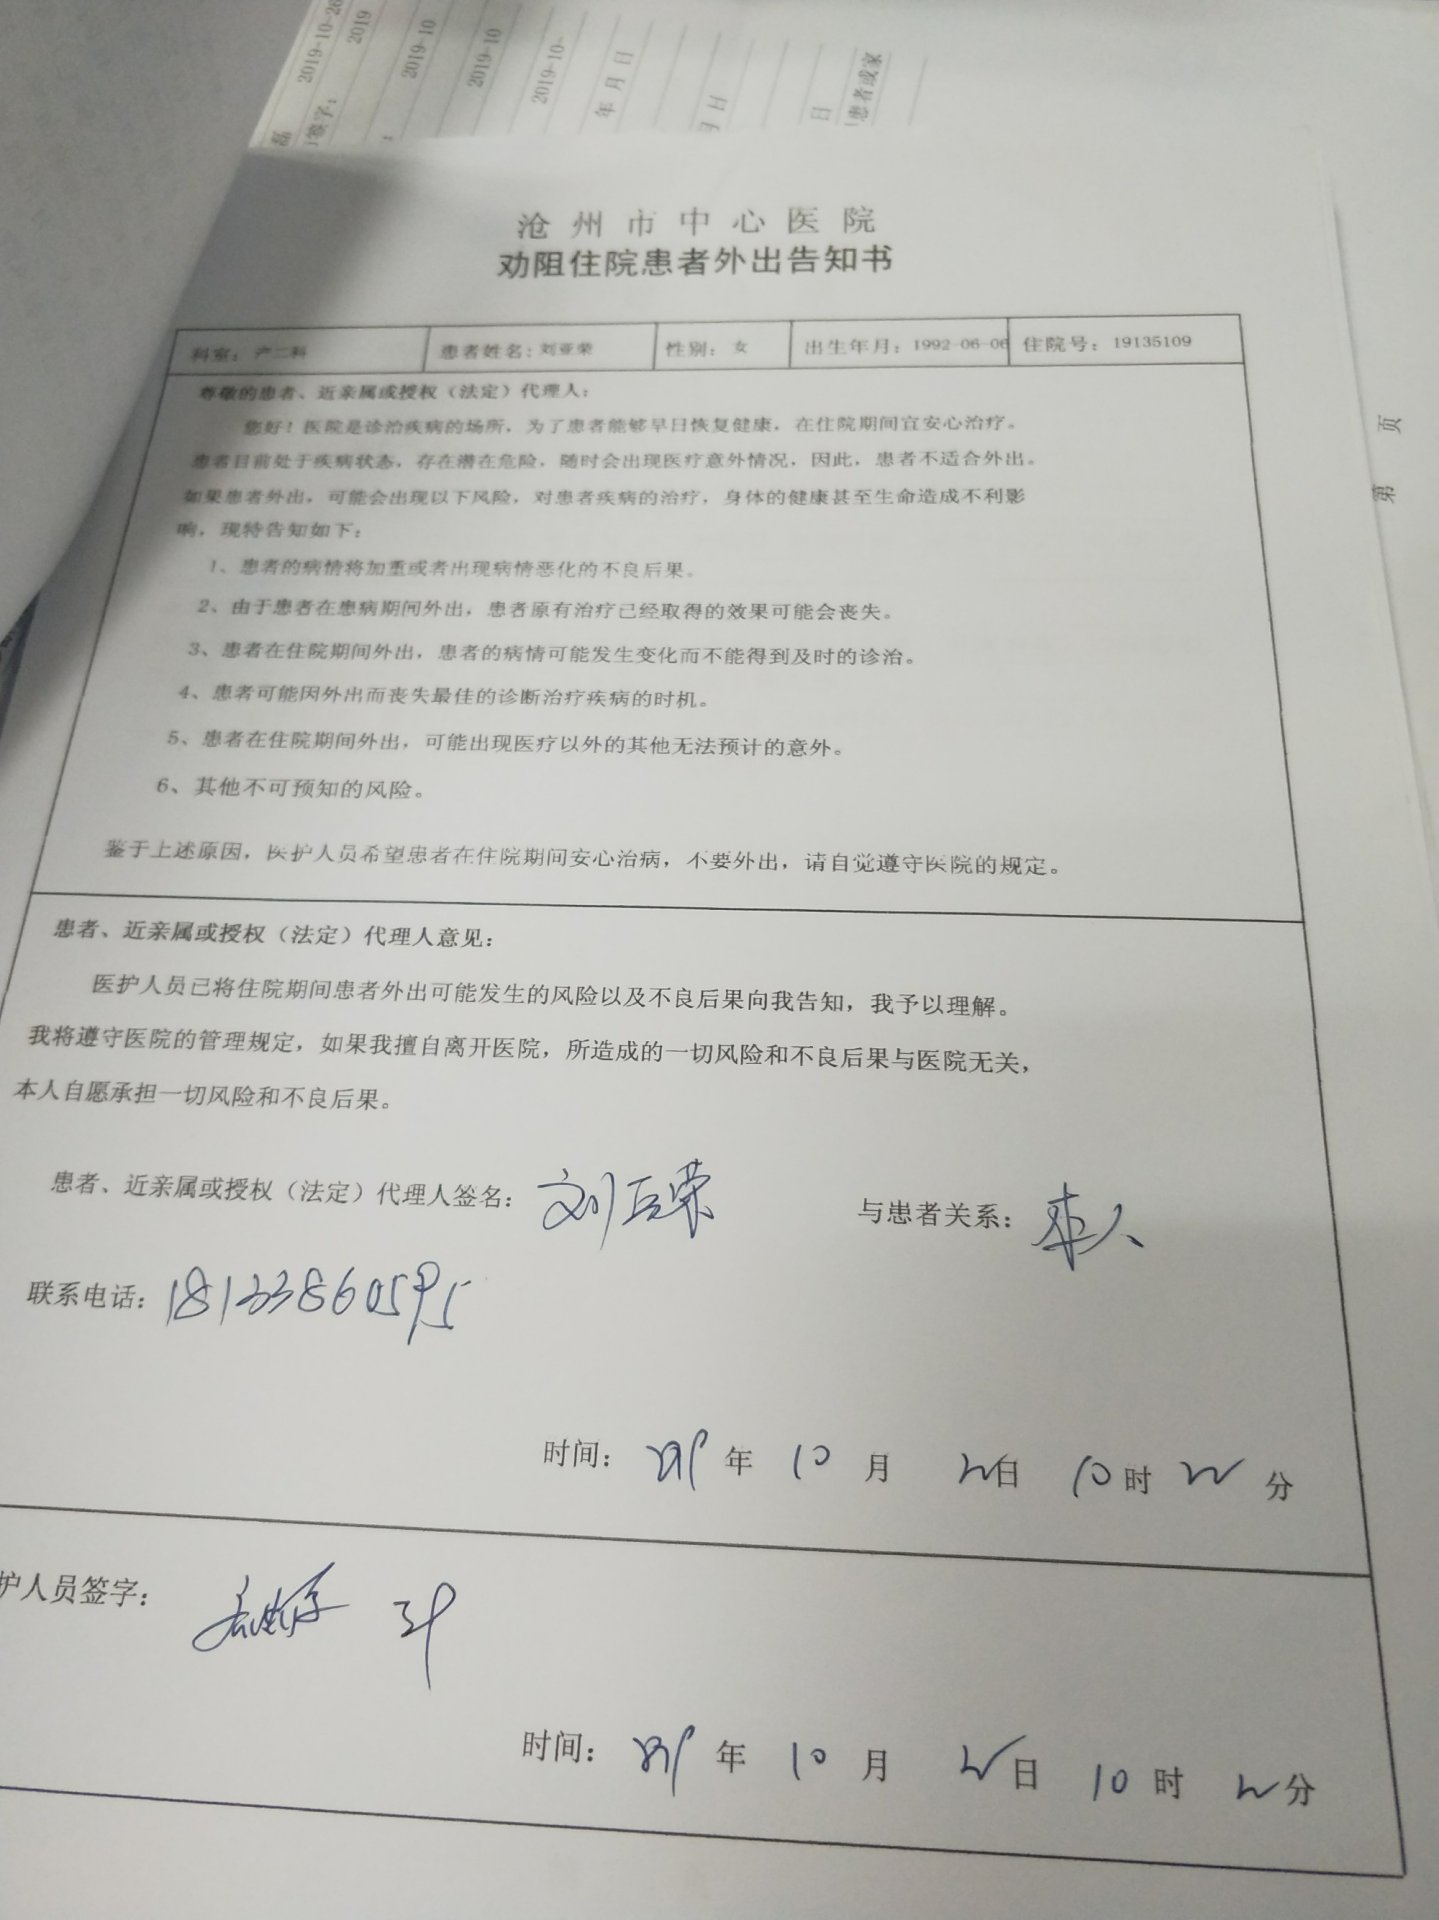 2019-10-26
2019
2019-10
2019-10
2019-10-
磊
签字：
年 月 日
月 日
日
患者或家
页
第
沧州市中心医院
劝阻住院患者外出告知书
科室：产二科 患者姓名：刘亚荣 性别：女 出生年月：1992-06-06 住院号：19135109
尊敬的患者、近亲属或授权（法定）代理人：
您好！医院是诊治疾病的场所，为了患者能够早日恢复健康，在住院期间宜安心治疗。
患者目前处于疾病状态，存在潜在危险，随时会出现医疗意外情况，因此，患者不适合外出。
如果患者外出，可能会出现以下风险，对患者疾病的治疗，身体的健康甚至生命造成不利影
响，现特告知如下：
1、患者的病情将加重或者出现病情恶化的不良后果。
2、由于患者在患病期间外出，患者原有治疗已经取得的效果可能会丧失。
3、患者在住院期间外出，患者的病情可能发生变化而不能得到及时的诊治。
4、患者可能因外出而丧失最佳的诊断治疗疾病的时机。
5、患者在住院期间外出，可能出现医疗以外的其他无法预计的意外。
6、其他不可预知的风险。
鉴于上述原因，医护人员希望患者在住院期间安心治病，不要外出，请自觉遵守医院的规定。
患者、近亲属或授权（法定）代理人意见：
医护人员已将住院期间患者外出可能发生的风险以及不良后果向我告知，我予以理解。
我将遵守医院的管理规定，如果我擅自离开医院，所造成的一切风险和不良后果与医院无关，
本人自愿承担一切风险和不良后果。
患者、近亲属或授权（法定）代理人签名：刘亚荣 与患者关系：本人
联系电话：18133860595
时间： 年 10 月 日 10 时 分
护人员签字：
时间： 年 10 月 日 10 时 分